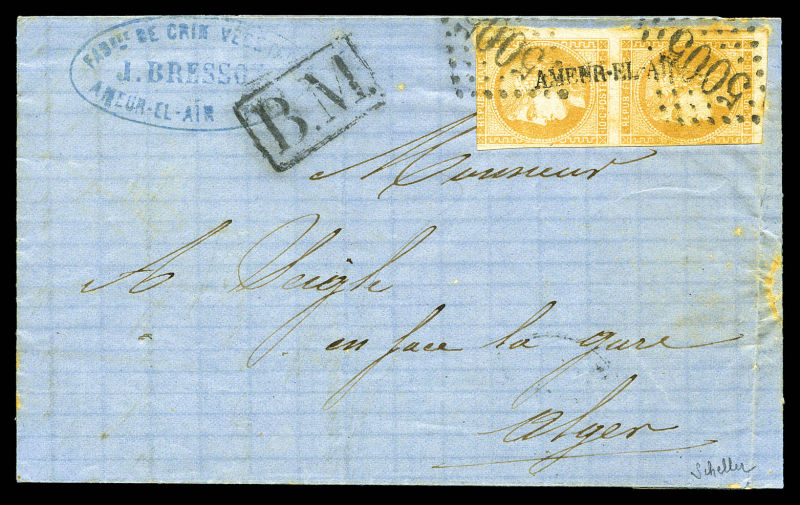 FABque DE CRIN VÉG
J. BRESSON
AMEUR-EL-AÏN
B.M
5005
AMEUR-EL-AÏN
5005
Monsieur
A Veigle
en face la gare
Alger
Scheller